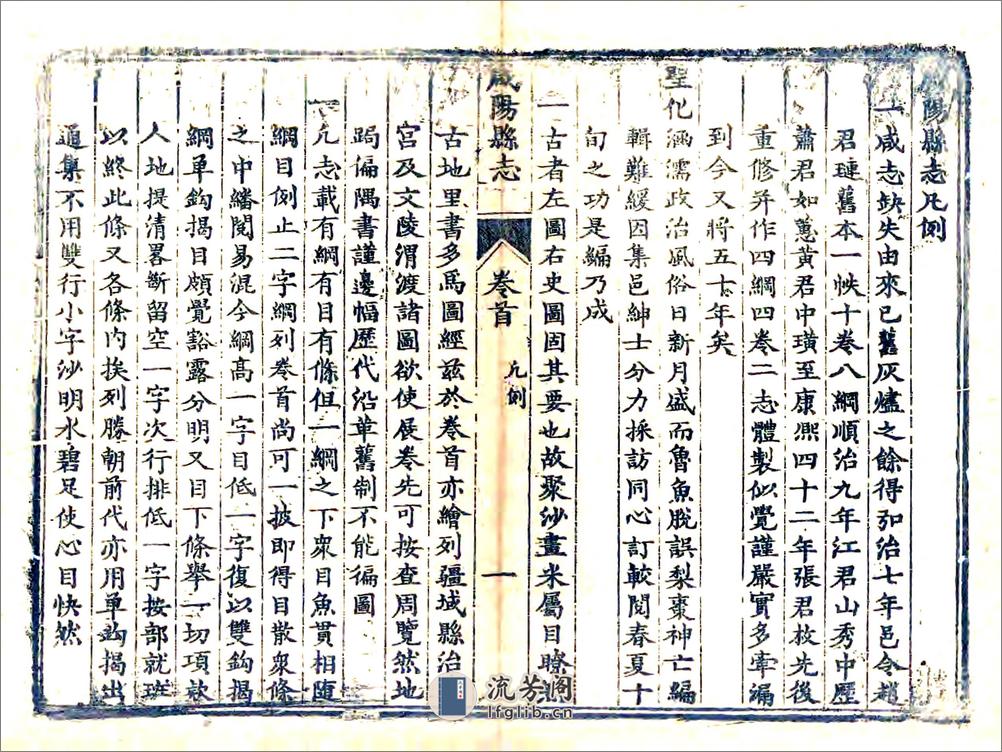 咸陽縣志凡例
一咸志缺失由來已舊灰燼之餘得弘治七年邑令趙
君璉舊本一帙十卷八綱順治九年江君山秀中歷
蕭君如蕙黃君中璜至康熙四十二年張君枚先後
重修并作四綱四卷二志體製似覺謹嚴實多牽漏
到今又將五十年矣
聖化涵濡政治風俗日新月盛而魯魚脫誤梨棗神亡編
輯難緩因集邑紳士分力採訪同心訂較閱春夏十
旬之功是編乃成
一古者左圖右史圖固其要也故聚沙畫米屬目瞭然
古地里書多爲圖經茲於卷首亦繪列疆域縣治
宮及文陵渭渡諸圖欲使展卷先可按查周覽然地
跼偏隅書謹邊幅歷代沿革舊制不能徧圖
一凡志載有綱有目有條但一綱之下衆目魚貫相随
綱目例止二字綱列卷首尚可一披即得目散衆條
之中繙閱易混今綱高一字目低一字復以雙鈎揭
綱单鈎揭目頗覺豁露分明又目下條舉一切項欵
人地提清畧斷留空一字次行排低一字按部就班
以終此條又各條內挨列勝朝前代亦用单鈎揭出
通集不用雙行小字沙明水碧足使心目快然
咸陽縣志
卷首
凡例
一
流芳阁
lfglib.cn